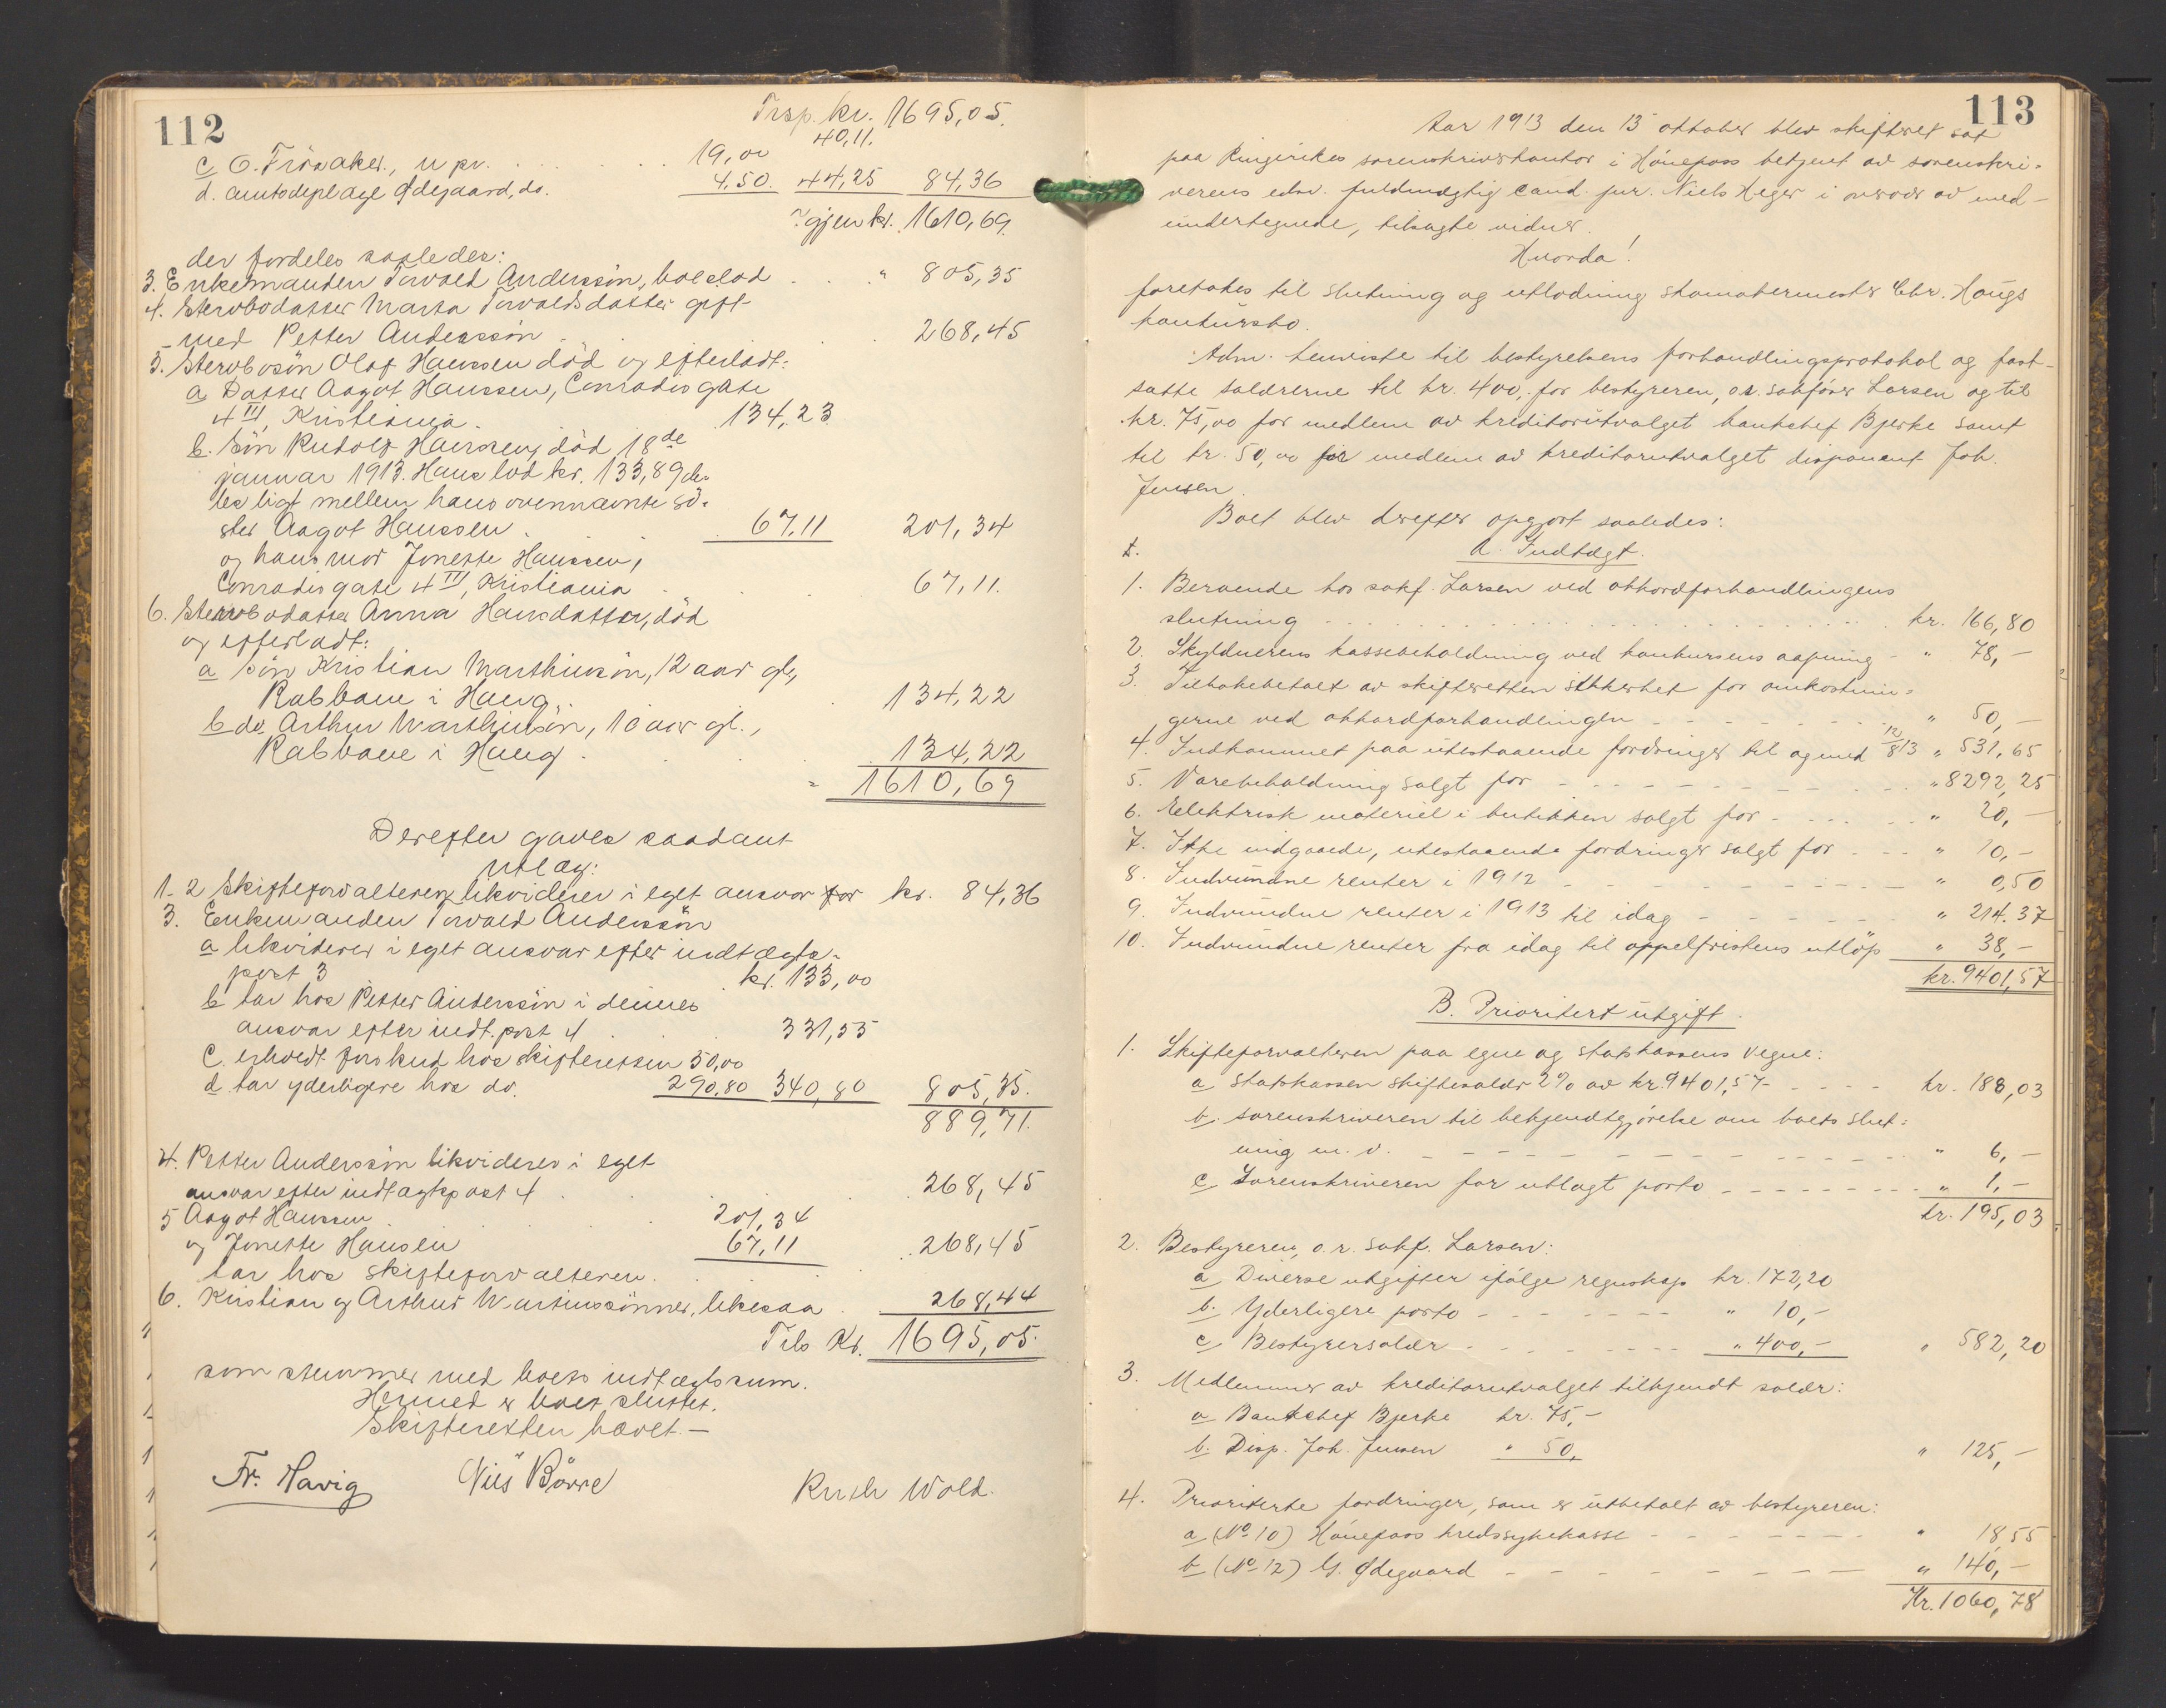 112
Trsp. kr. 1695,05.
40,11.
c O. Frösaker, u pv. . . . . . 19,00
d. amtsdeplage Ødegaard, do. 4.50. 44,25 84,36
Igjen kr. 1610,69.
der fordeles saaledes:
3. Enkemanden Torvald Anderssön, boeslod . . . " 805,35
4. Stervbodatter Marta Torvaldsdatter gift
med Petter Anderssön . . . 268,45
5. Stervbosön Olaf Hanssen död og efterladt:
a Datter Aagot Hanssen, Conradisgate
4 III, Kristiania . 134,23
b. Sön Rudolf Hanssen, död 18de
januar 1913. Hans lod kr. 133,89 de-
les ligt mellem hans ovennævnte sö-
ster Aagot Hanssen . 67,11 201,34
og hans mor Jonette Hanssen,
Conradisgate 4 III, Kristiania . . . 67,11.
6. Stervbodatter Anna Hansdatter, död
og efterladt:
a Sön Kristian Marthinsön, 12 aar gl.,
Rabbane i Haug . . 134,22
b do. Arthur Marthinsön, 10 aar gl.,
Rabbane i Haug . . . 134,22
= 1610,69
Derefter gaves saadant
utlæg:
1-2 Skifteforvalteren likviderer i eget ansvar for kr. 84,36
3. Enkemanden Torvald Anderssön
a likviderer i eget ansvar efter indtægts-
post 3 . kr. 133,00
b tar hos Petter Anderssön i dennes
ansvar efter indt. post 4 . . 331,55
c. erholdt forskud hos skifteretten 50,00
d tar yderligere hos do. 290,80 340,80 805,35.
889,71.
4. Petter Anderssön likviderer i eget
ansvar efter indtægtspost 4 . . . 268,45
5 Aagot Hanssen . . . 201,34
og Jonette Hansen 67,11 . 268,45
tar hos skifteforvalteren . . .
6. Kristian og Arthur Martinssönner, likesaa . 268,44
Tils Kr. 1695,05.
som stemmer med boets indtægtssum.
Hermed er boet sluttet.
Skifteretten hævet. —
Fr. Havig Nils Börre Ruth Wold.
113
Aar 1913 den 15 oktober blev skifteret sat
paa Ringerikes sorenskriverkontor i Hönefoss betjent av sorenskri-
verens edsv. fuldmægtig cand. jur. Niels Heger i overvær av med-
undertegnede, tilsagte vidner.
Hvorda!
foretokes til slutning og utlodning skomakermester Chr. Haugs
konkursbo.
Adm. henviste til bestyrelsens forhandlingsprotokol og fast-
satte salærerne til kr. 400,- for bestyreren, o.r. sakförer Larsen og til
kr. 75,00 for medlem av kreditorutvalget bankchef Bjerke samt
til kr. 50,00 for medlem av kreditorutvalget disponent Joh.
Jensen.
Boet blev derefter opgjort saaledes:
I. A. Indtægt.
1. Beroende hos sakf. Larsen ved akkordforhandlingens
slutning - - - - - kr. 166,80
2. Skyldnerens kassebeholdning ved konkursens aapning - " 78,-
3. Tilbakebetalt av skifteretten sikkerhet for omkostnin-
gerne ved akkordforhandlingen - - - - " 50,-
4. Indkommet paa utestaaende fordringer til og med 12/8 13 " 531,65
5. Varebeholdning solgt for - - - - - " 8292,25
6. Elektrisk materiel i butikken solgt for - - - - " 20,-
7. Ikke indgaaede, utestaaende fordringer solgt for - - - " 10,-
8. Indvundne renter i 1912 - - - - - " 0,50
9. Indvundne renter i 1913 til idag - - - - - " 214.37
10. Indvundne renter fra idag til appelfristens utlöp " 38,-
kr. 9401,57
B. Prioritert utgift.
1. Skifteforvalteren paa egne og statskassens vegne:
a statskassen skiftesalær 2% av kr. 9401,57 - - - - kr. 188,03
b. sorenskriveren til bekjendtgjörelse om boets slut-
ning m. v. - - - - - " 6,-
c Sorenskriveren for utlagt porto - - - - - " 1,-
kr. 195,03
2. Bestyreren, o. r. sakf. Larsen:
a Diverse utgifter ifölge regnskap kr. 172,20
b. Yderligere porto - - - - - " 10,-
c Bestyrersalær - - - - - " 400,- " 582,20
3. Medlemmer av kreditorutvalget tilkjendt salær:
a Bankchef Bjerke kr. 75,-
b. Disp. Joh. Jensen " 50, " 125,-
4. Prioriterte fordringer, som er utbetalt av bestyreren:
a (No 10) Hönefoss kredssykekasse - - - - - " 18,55
b (No 12) G. Ødegaard - - - - - " 140,-
Kr. 1060,78